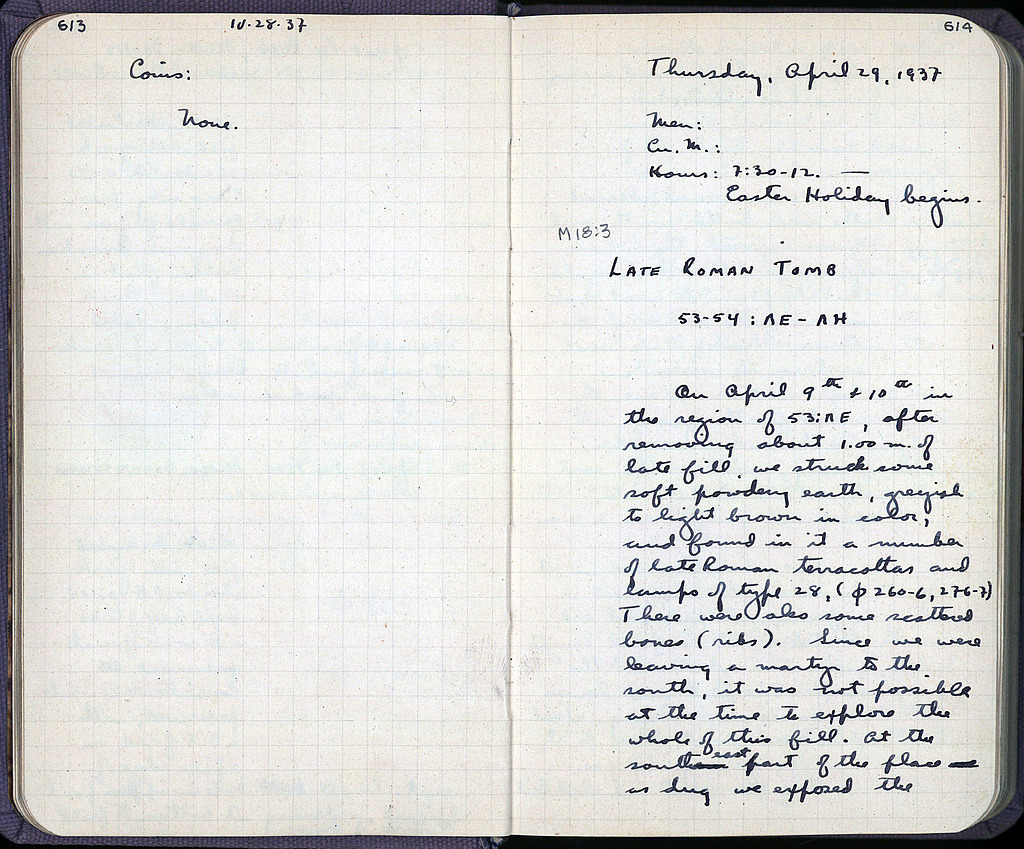 613
10.28.37
Coins:
None.
614
Thursday, April 29, 1937
Men:
Cu. M.:
Hours: 7:30-12. —
Easter Holiday begins.
M 18:3
LATE ROMAN TOMB
53-54 : ΛE - ΛH
On April 9th & 10th in
the region of 53:ΛE, after
removing about 1.00 m. of
late fill, we struck some
soft powdery earth, greyish
to light brown in color,
and found in it a number
of late Roman terracottas and
lamps of type 28, (φ 260-6, 276-7)
There were also some scattered
bones (ribs). Since we were
leaving a martyr to the
south, it was not possible
at the time to explore the
whole of this fill. At the
southeast part of the place
as dug we exposed the